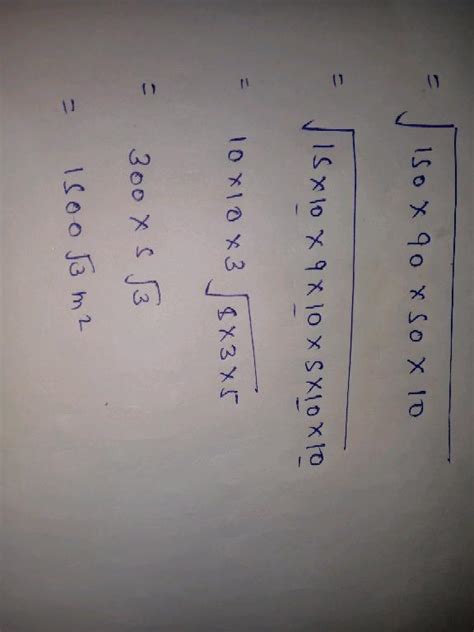 = √150 × 90 × 50 × 10
= √15×10 × 9×10 × 5×10×10
= 10×10×3 √5×3×5
= 300 × 5 √3
= 1500 √3 m²